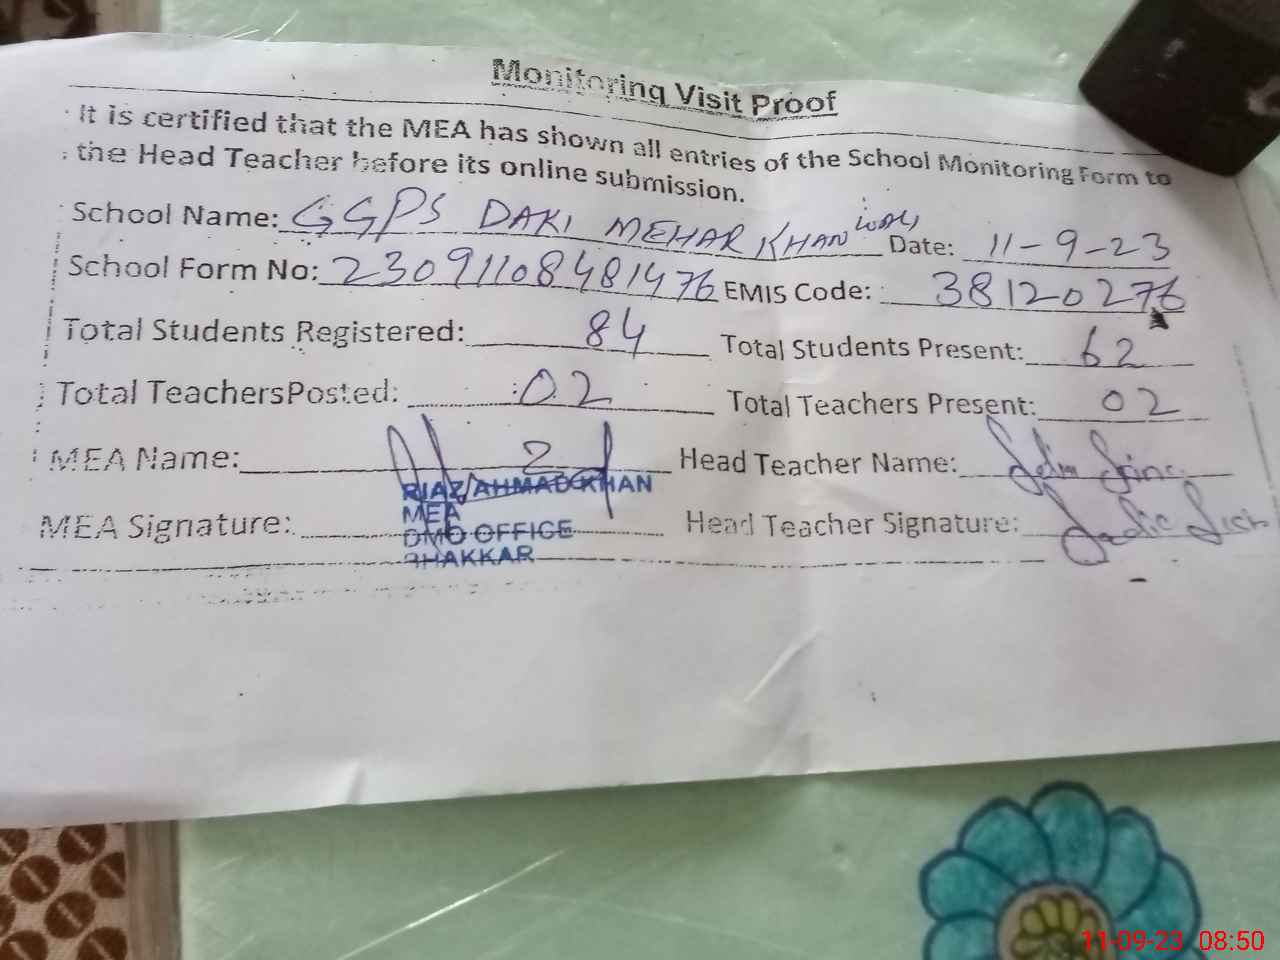 Monitoring Visit Proof
It is certified that the MEA has shown all entries of the School Monitoring Form to
the Head Teacher before its online submission.
School Name: GGPS DAKI MEHAR KHAN WALI Date: 11-9-23
School Form No: 23091108481476 EMIS Code: 38120276
Total Students Registered: 84 Total Students Present: 62
Total TeachersPosted: 02 Total Teachers Present: 02
MEA Name: Head Teacher Name:
RIAZ AHMAD KHAN
MEA
MEA Signature: DMO OFFICE Head Teacher Signature:
BHAKKAR
11-09-23 08:50